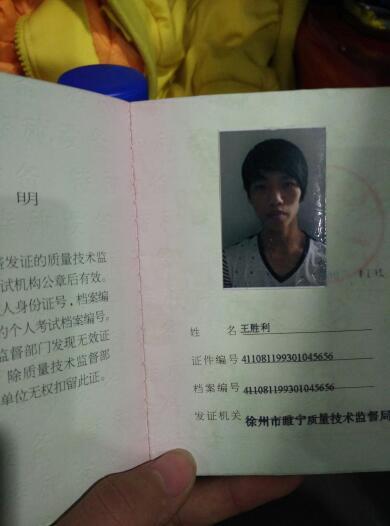 明
发证的质量技术监
试机构公章后有效。
人身份证号，档案编
的个人考试档案编号。
监督部门发现无效证
除质量技术监督部
单位无权扣留此证。
姓 名 王胜利
证件编号 411081199301045656
档案编号 411081199301045656
发证机关 徐州市睢宁质量技术监督局